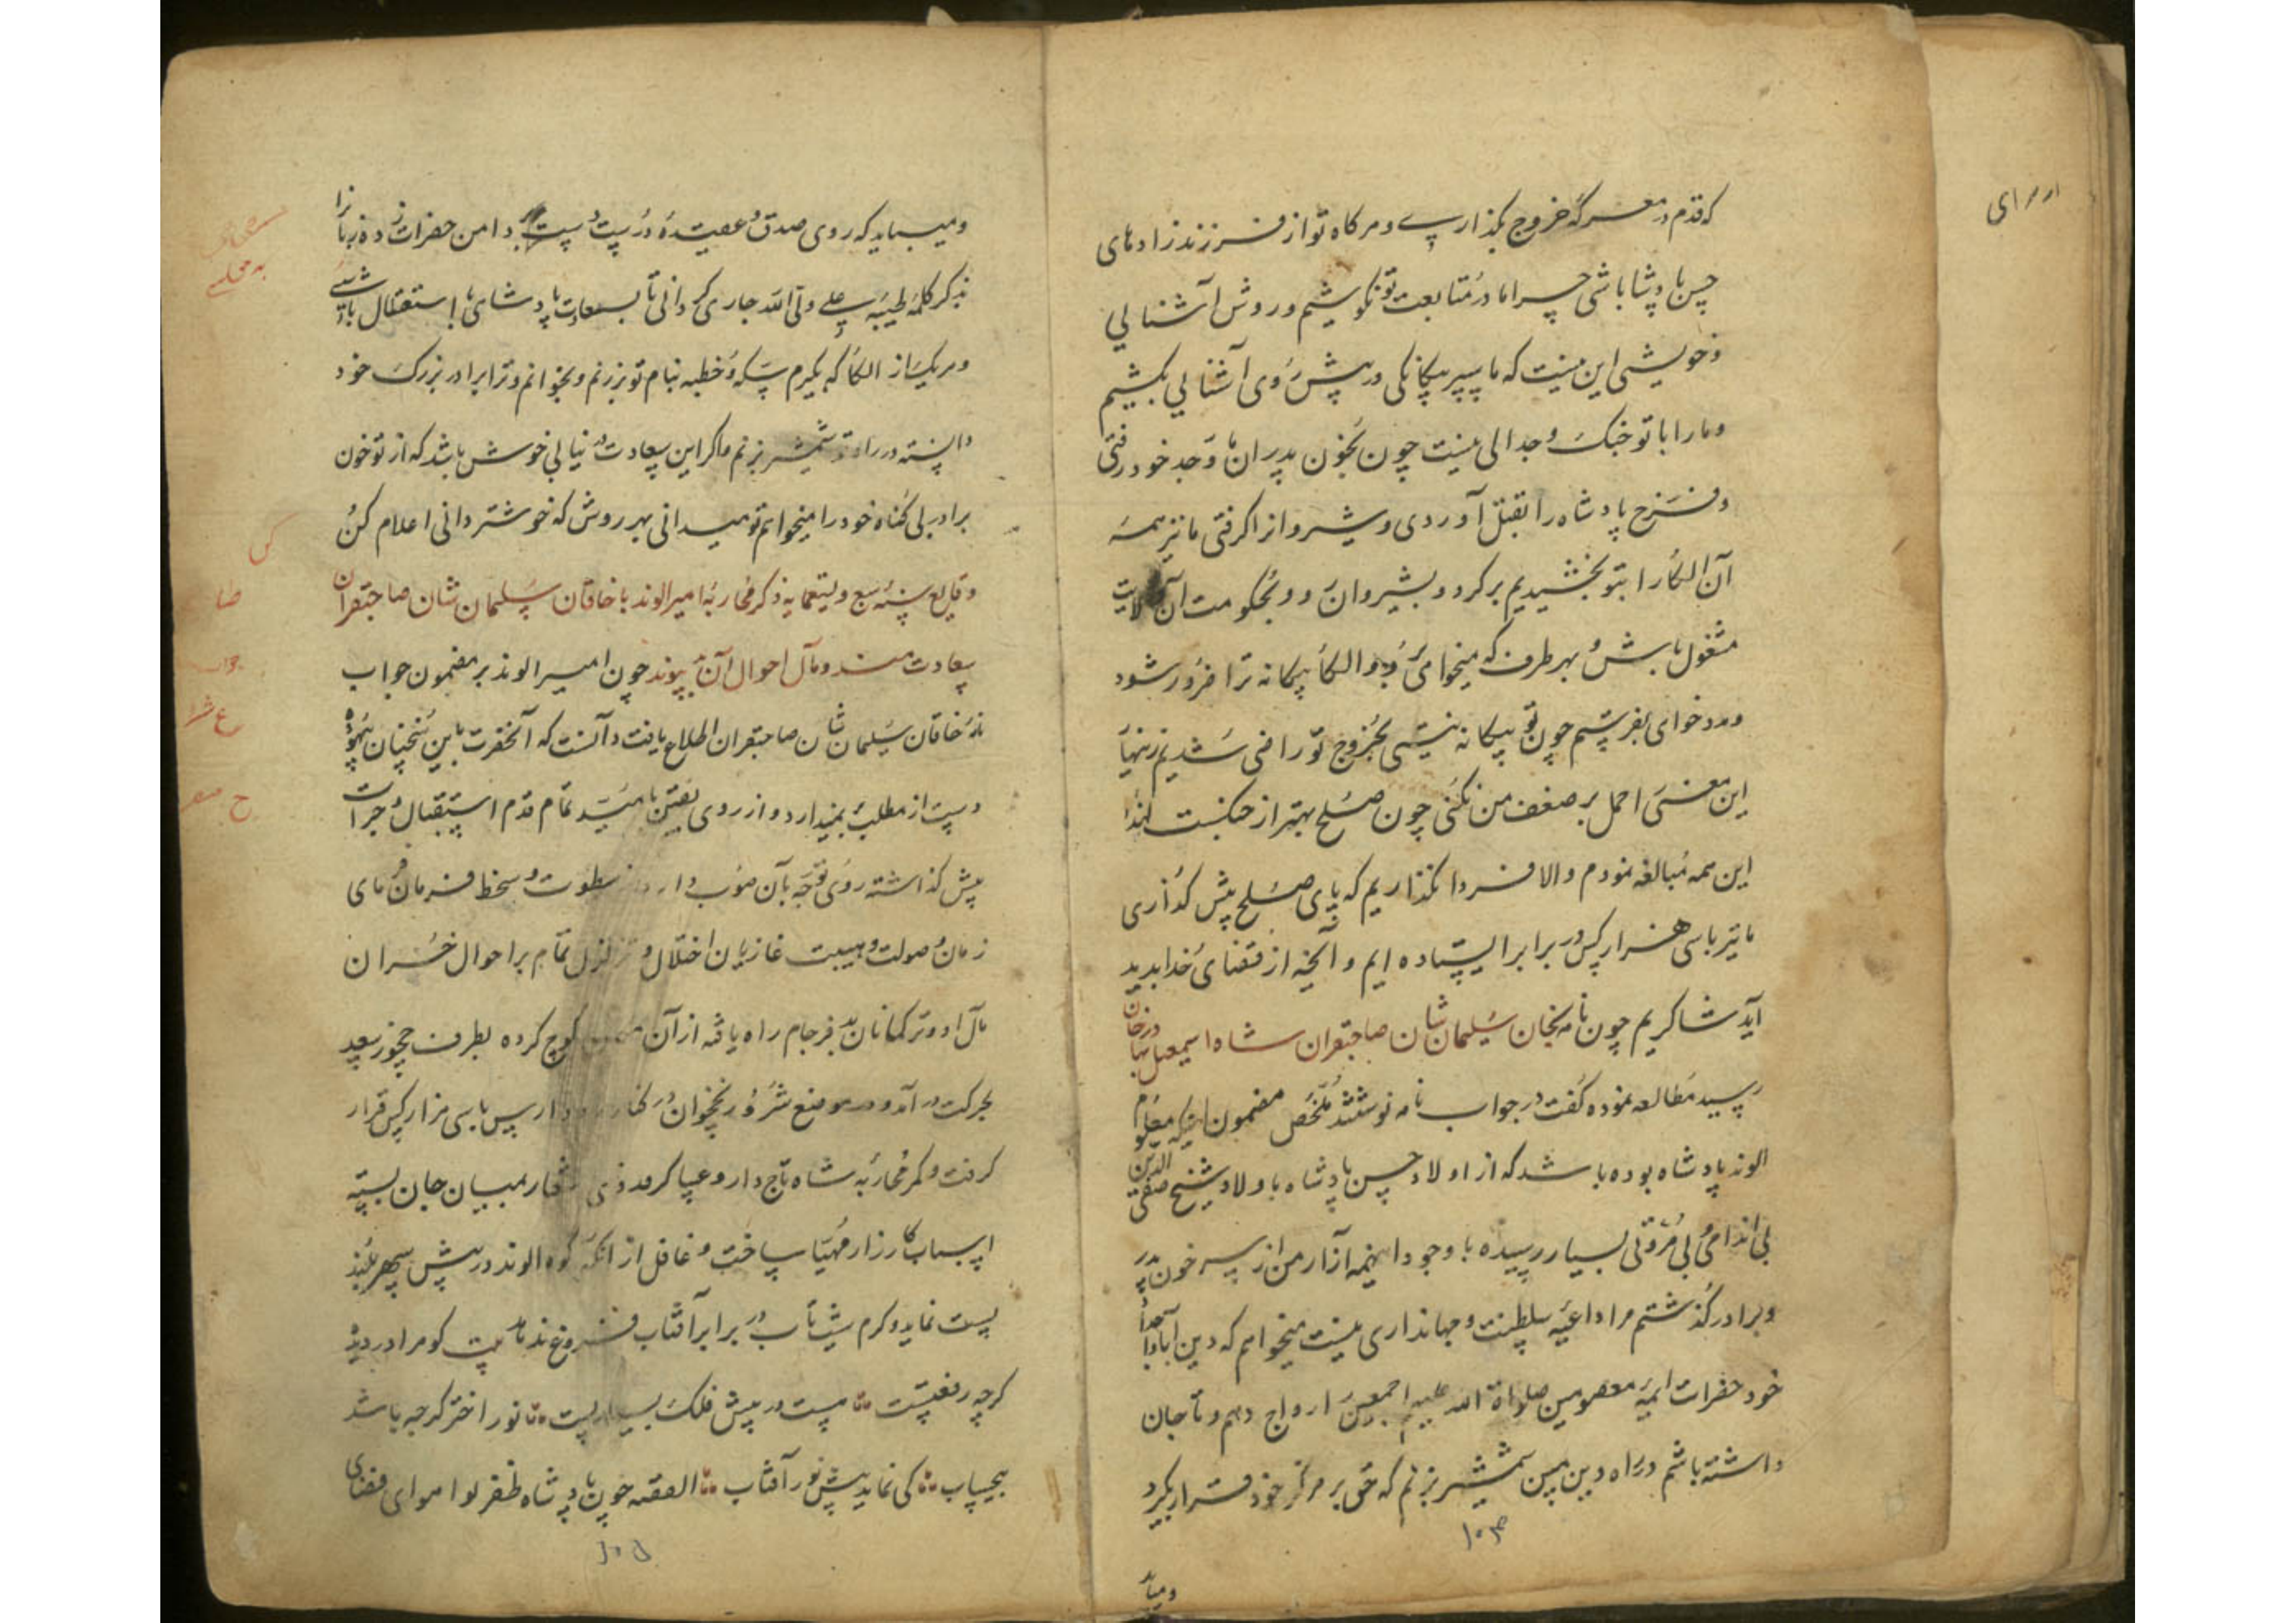 که قدم در معرکه خروج بگذارپے و هرگاه تو از فرزندزادهای
حسن پادشا باشی چرا ما در متابعت تو نکوشیم و روش آشنایی
و خویشی این نیست که ما سپر بیکانکی در پیش روی آشنایی بکشیم
و ما را با تو جنک و جدالی نیست چون بخون پدران و جد خود رفتی
و فرخ پادشاه را بقتل آوردی و شیروانرا کرفتی ما نیز همه
آن الکا را بتو بخشیدیم برکرد و بشیروان رو و بحکومت آن ولایت
مشغول باش و بهر طرف که میخواهی برو و الکا بیکانه ترا ضرور شود
مدد خواهی بفرستیم چون تو بیکانه نیستی بخروج تو راضی شدیم زینهار
این معنی را حمل بر ضعف من نکنی چون صلح بهتر از جنکست لهذا
این همه مبالغه نمودم والا فردا نکذاریم که پای صلح پیش کذاری
ما نیز با سی هزار کس در برابر ایستاده ایم و آنچه از قضای خدا بدید
آید شاکریم چون نامه بخان سلیمان شان صاحبقران شاه اسمعیل بهادرخان
رسید مطالعه نموده کفت در جواب نامه نوشتند ملخص مضمون اینکه معلوم
الوند پادشاه بوده باشد که از اولاد حسن پادشاه باولاد شیخ صفی الدین
بی اندامی و بی مروتی بسیار رسیده با وجود اینهمه آزار من از سر خون پدر
و برادر کذشتم مرا داعیه سلطنت و جهانداری نیست میخواهم که دین آبا و اجداد
خود حضرات ایمه معصومین صلواة الله علیهم اجمعین را رواج دهم و تا جان
داشته باشم در راه دین مبین شمشیر بزنم که حق بر مرکز خود قرار بکیرد
ومیباید
ومیباید که روی صدق و عقیده درست دست بر دامن حضرات زده زبانرا
بذکر کلمه طیبه علی ولی الله جاری کردانی تا بسعادت پادشاهی با استقلال باشی
و هر یک از الکا که بکیرم سکه و خطبه بنام تو بزنم و بخوانم و ترا برادر بزرک خود
دانسته در راه تو شمشیر بزنم و اکر این سعادت در نیابی خوش باشد که از تو خون
برادر بی کناه خود را میخواهم تو میدانی بهر روش که خوشتر دانی اعلام کن
وقایع سنه سبع و تسعمایه ذکر محاربه امیر الوند با خاقان سلیمان شان صاحبقران
سعادت مند و مآل احوال آن بدپیوند چون امیر الوند بر مضمون جواب
نامه خاقان سلیمان شان صاحبقران اطلاع یافت دانست که آنحضرت باین سخنان بیهوده
دست از مطلب برنمیدارد و از روی یقین با امید تمام قدم استقبال و جرات
پیش کذاشته روی توجه بآن صوب دارد از سطوت و سخط فرمان فرمای
زمان و صولت و هیبت غازیان اختلال و تزلزل تمام بر احوال خسران
مآل او و ترکمانان بد فرجام راه یافته از آن کوچ کرده بطرف چخور سعد
بحرکت در آمد و در موضع شرور نخجوان در کنار رود ارس با سی هزار کس قرار
کرفت و کمر محاربه شاه تاج دار و سپاه کردون وقار بمیان جان بسته
اسباب کارزار مهیا ساخت و غافل از آنکه کوه الوند در پیش سپهر بلند
پست نماید و کرم شبتاب در برابر آفتاب فروغ ندهد بیت کوه را در دیده
کرچه رفعتست پست در پیش فلک بسیار پست نور اختر کرچه باشد
بیحساب کی نماید پیش نور آفتاب القصه چون پادشاه ظفر لوا هوای فضای